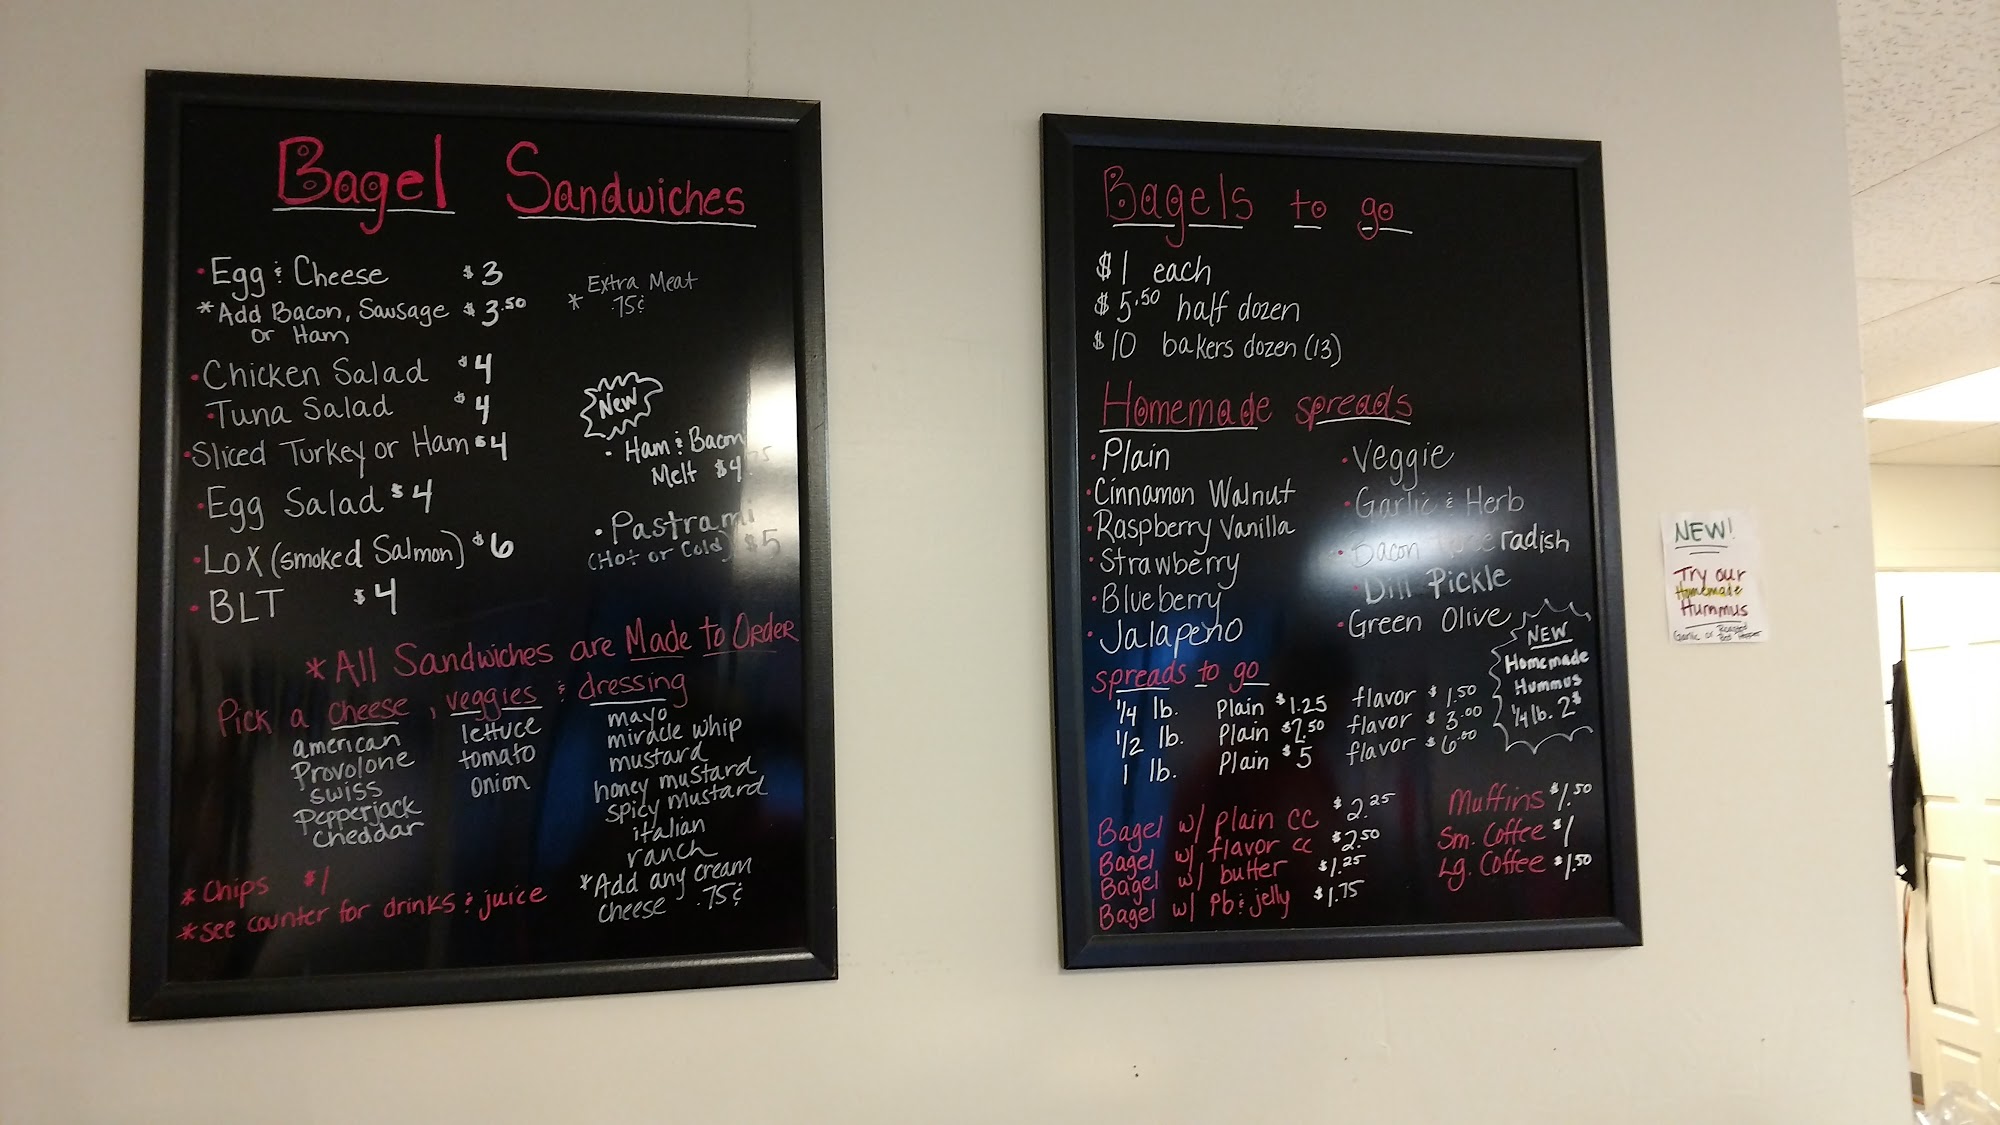 Bagel Sandwiches
• Egg & Cheese $3
* Add Bacon, Sausage $3.50
or Ham
* Extra Meat
.75¢
• Chicken Salad $4
• Tuna Salad $4
• Sliced Turkey or Ham $4
• Egg Salad $4
• LOX (smoked Salmon) $6
• BLT $4
New
• Ham & Bacon
Melt $4.75
• Pastrami
(Hot or Cold) $5
*All Sandwiches are Made to Order
Pick a cheese, veggies & dressing
american
Provolone
swiss
Pepperjack
cheddar
lettuce
tomato
onion
mayo
miracle whip
mustard
honey mustard
spicy mustard
italian
ranch
*Add any cream
cheese .75¢
* Chips $1
* see counter for drinks & juice
Bagels to go
$1 each
$5.50 half dozen
$10 bakers dozen (13)
Homemade spreads
• Plain
• Cinnamon Walnut
• Raspberry Vanilla
• Strawberry
• Blueberry
• Jalapeno
• Veggie
• Garlic & Herb
• Bacon Horseradish
• Dill Pickle
• Green Olive
spreads to go
1/4 lb. Plain $1.25 flavor $1.50
1/2 lb. Plain $2.50 flavor $3.00
1 lb. Plain $5 flavor $6.00
NEW
Homemade
Hummus
1/4 lb. 2$
Bagel w/ plain cc $2.25
Bagel w/ flavor cc $2.50
Bagel w/ butter $1.25
Bagel w/ Pb & jelly $1.75
Muffins $1.50
Sm. Coffee $1
Lg. Coffee $1.50
NEW!
Try our
Homemade
Hummus
Garlic or Roasted
Red Pepper